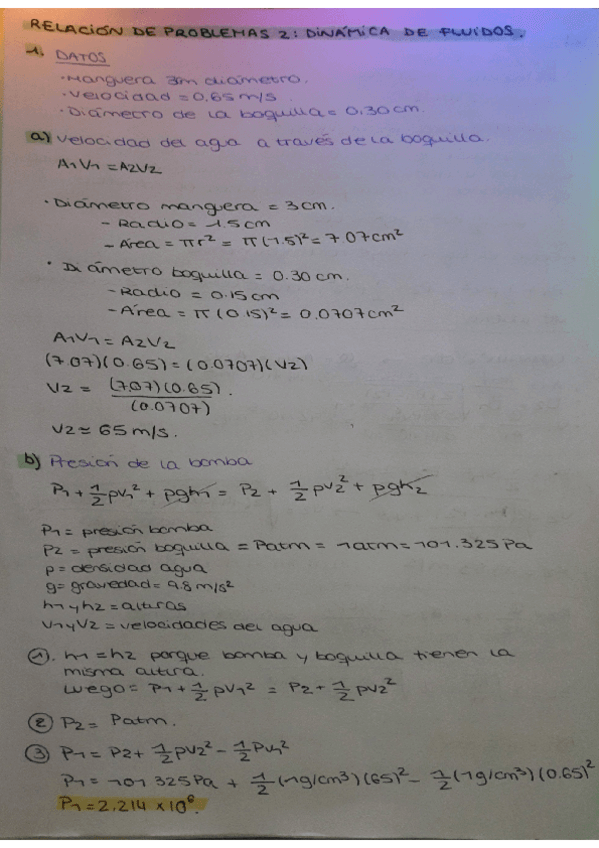 RELACIÓN DE PROBLEMAS 2: DINÁMICA DE FLUÍDOS.
1. DATOS
· Manguera 3m diámetro.
· Velocidad = 0,65 m/s
· Diámetro de la boquilla = 0,30 cm.
a) Velocidad del agua a través de la boquilla.
A1V1 = A2V2
· Diámetro manguera = 3 cm.
- Radio = 1.5 cm
- Área = πr² = π(1.5)² = 7.07 cm²
· Diámetro boquilla = 0.30 cm.
- Radio = 0.15 cm
- Área = π(0.15)² = 0.0707 cm²
A1V1 = A2V2
(7.07)(0.65) = (0.0707)(V2)
V2 = (7.07)(0.65) / (0.0707).
V2 ≈ 65 m/s.
b) Presión de la bomba
P1 + 1/2 ρv1² + ρgh1 = P2 + 1/2 ρv2² + ρgh2
P1 = presión bomba
P2 = presión boquilla = Patm = 1atm = 101.325 Pa
ρ = densidad agua
g = gravedad = 9.8 m/s²
h1 y h2 = alturas
V1 y V2 = velocidades del agua
①. h1 = h2 porque bomba y boquilla tienen la
misma altura.
Luego = P1 + 1/2 ρv1² = P2 + 1/2 ρv2²
② P2 = Patm.
③ P1 = P2 + 1/2 ρv2² - 1/2 ρv1²
P1 = 101 325 Pa + 1/2 (1g/cm³)(65)² - 1/2 (1g/cm³)(0.65)²
P1 = 2.214 × 10⁶.